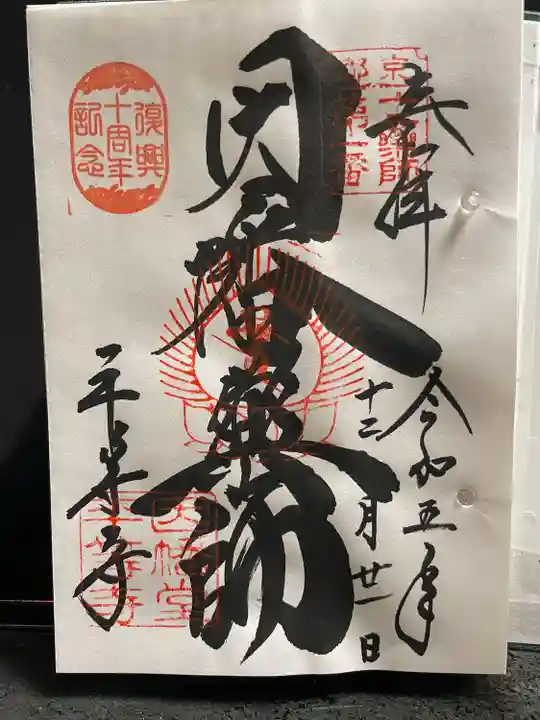 奉拝
令和五年
十二月廿一日
因幡薬師
平等寺
京十二薬師
第一番
復興
十周年
記念
因幡堂
平等寺